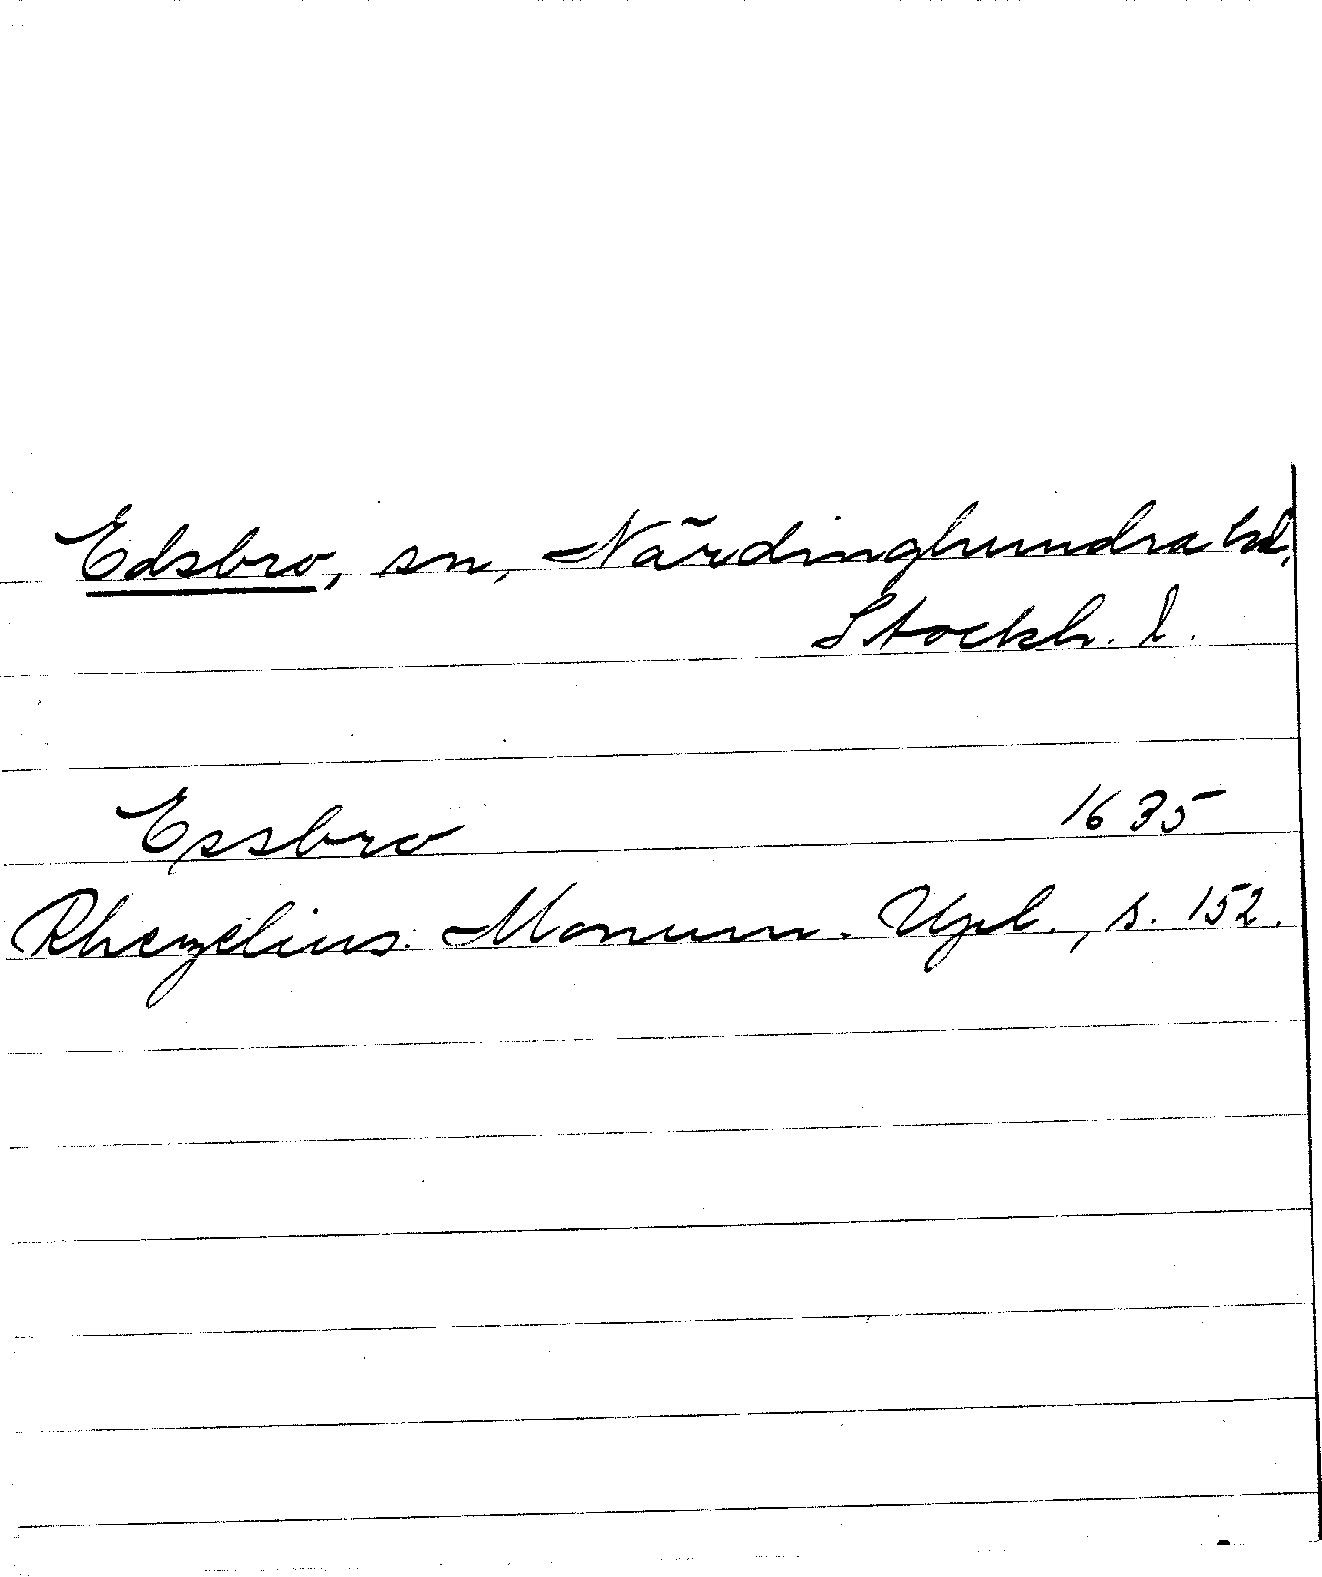 Edsbro, sn, Närdinghundra hd,
Stockh. l.
Essbro 1635
Rhezelius. Monum. Upl., s. 152.